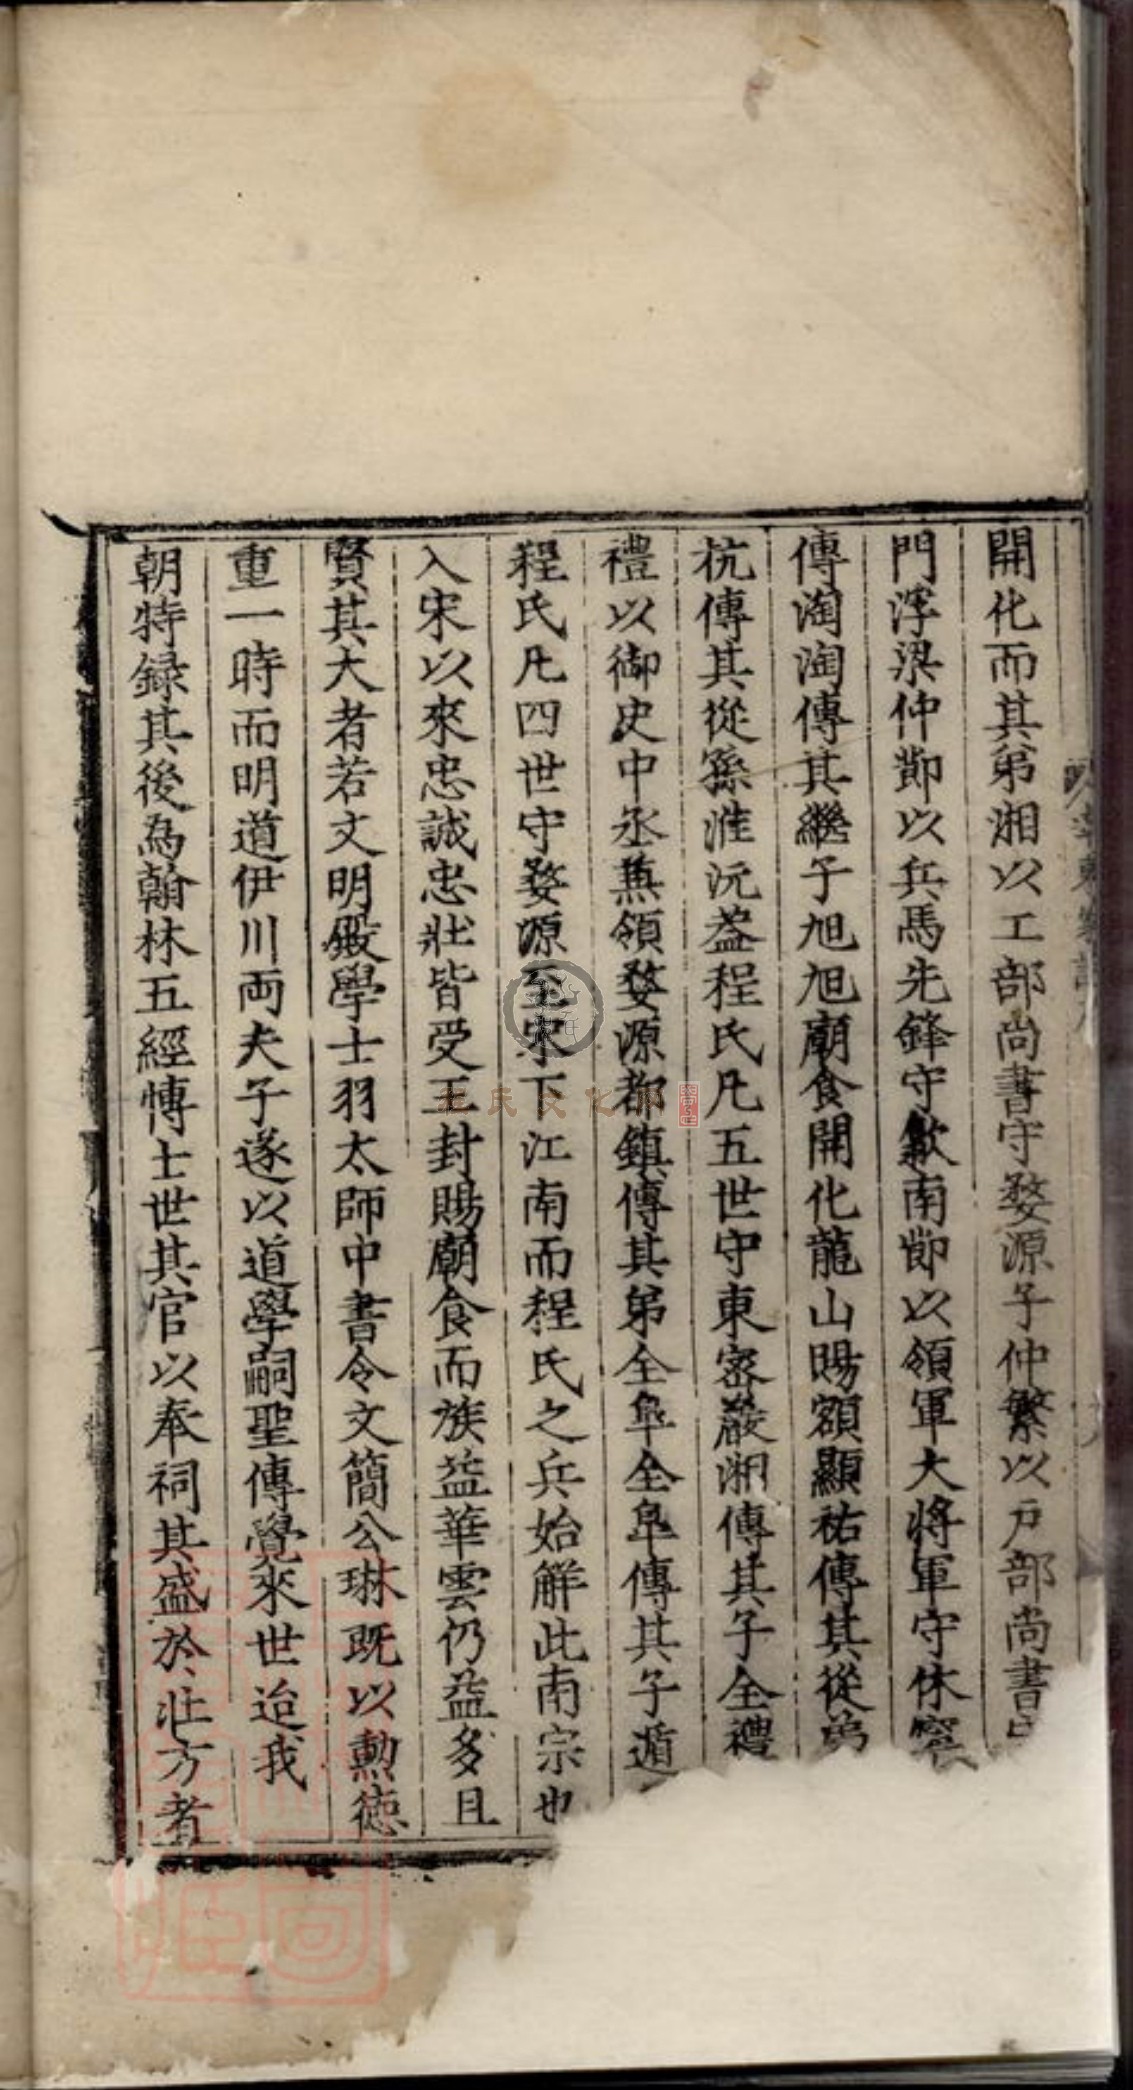 開化而其弟湘以工部尚書守婺源子仲繁以戶部尚書
門浮梁仲節以兵馬先鋒守歙南節以領軍大將軍守休寧
傳淘淘傳其繼子旭旭廟食開化龍山賜額顯祐傳其從弟
杭傳其從孫淮沅葢程氏凡五世守東密巖湘傳其子全禮
禮以御史中丞兼領婺源都鎮傳其弟全臯全臯傳其子遁
程氏凡四世守婺源至宋下江南而程氏之兵始解此南宗也
入宋以來忠誠忠壯皆受王封賜廟食而族益華雲仍益多且
賢其大者若文明殿學士羽太師中書令文簡公琳既以勲德
重一時而明道伊川両夫子遂以道學嗣聖傳覺來世迨我
朝特録其後為翰林五經博士世其官以奉祠其盛於壯方者